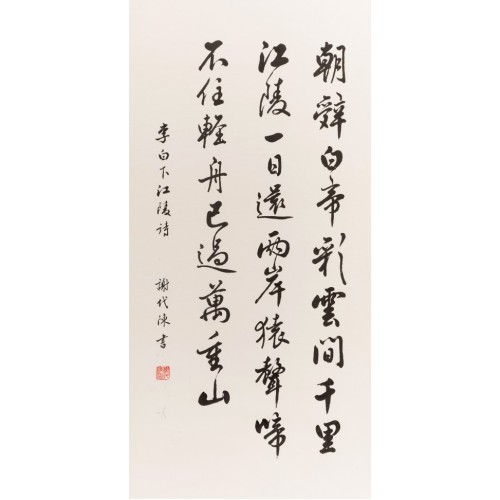 朝辭白帝彩雲間千里
江陵一日還兩岸猿聲啼
不住輕舟已過萬重山
李白下江陵詩
謝代陳書